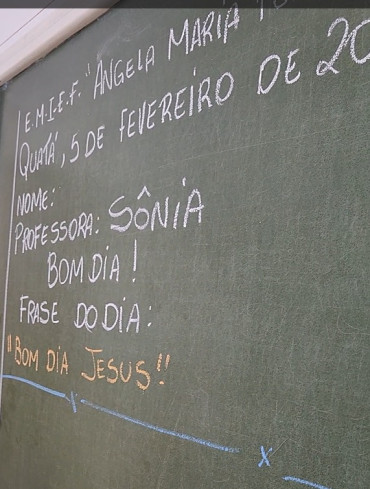 E.M.I.E.F. "ANGELA MARIA
QUATÁ, 5 DE FEVEREIRO DE 20
NOME:
PROFESSORA: SÔNIA
BOM DIA!
FRASE DO DIA:
"BOM DIA JESUS!"
X X